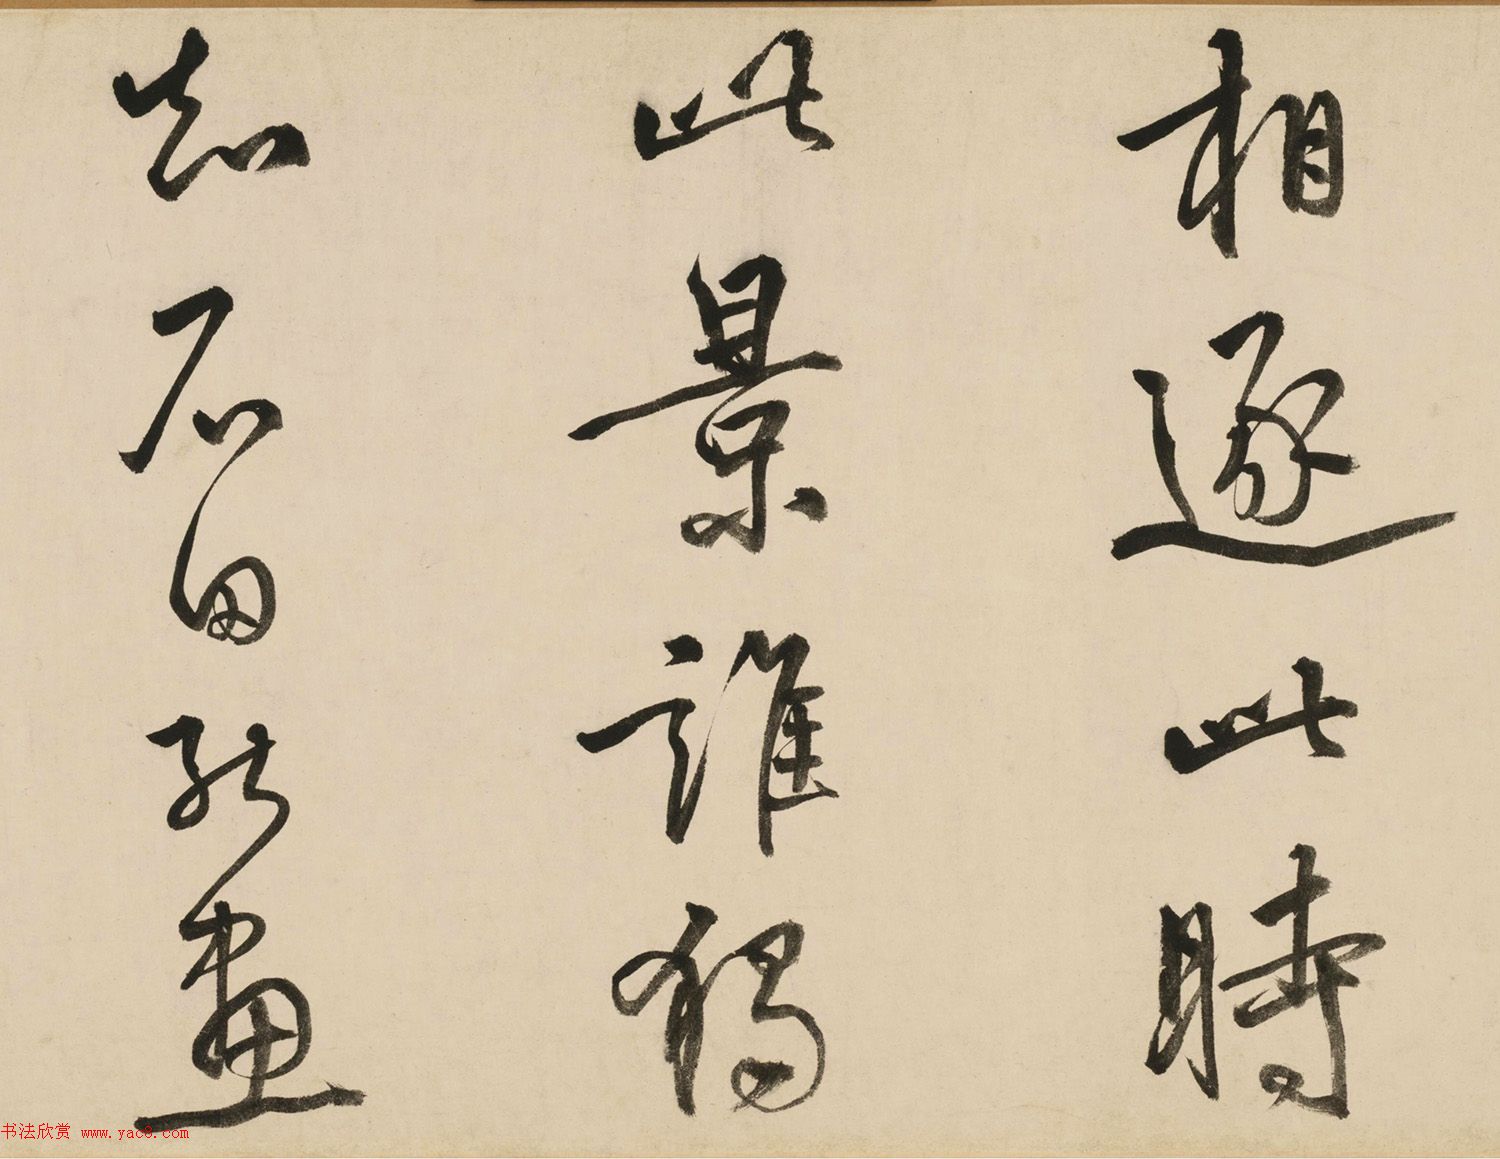 相逐此時
此景誰獨
知石田能畫
书法欣赏 www.yac8.com